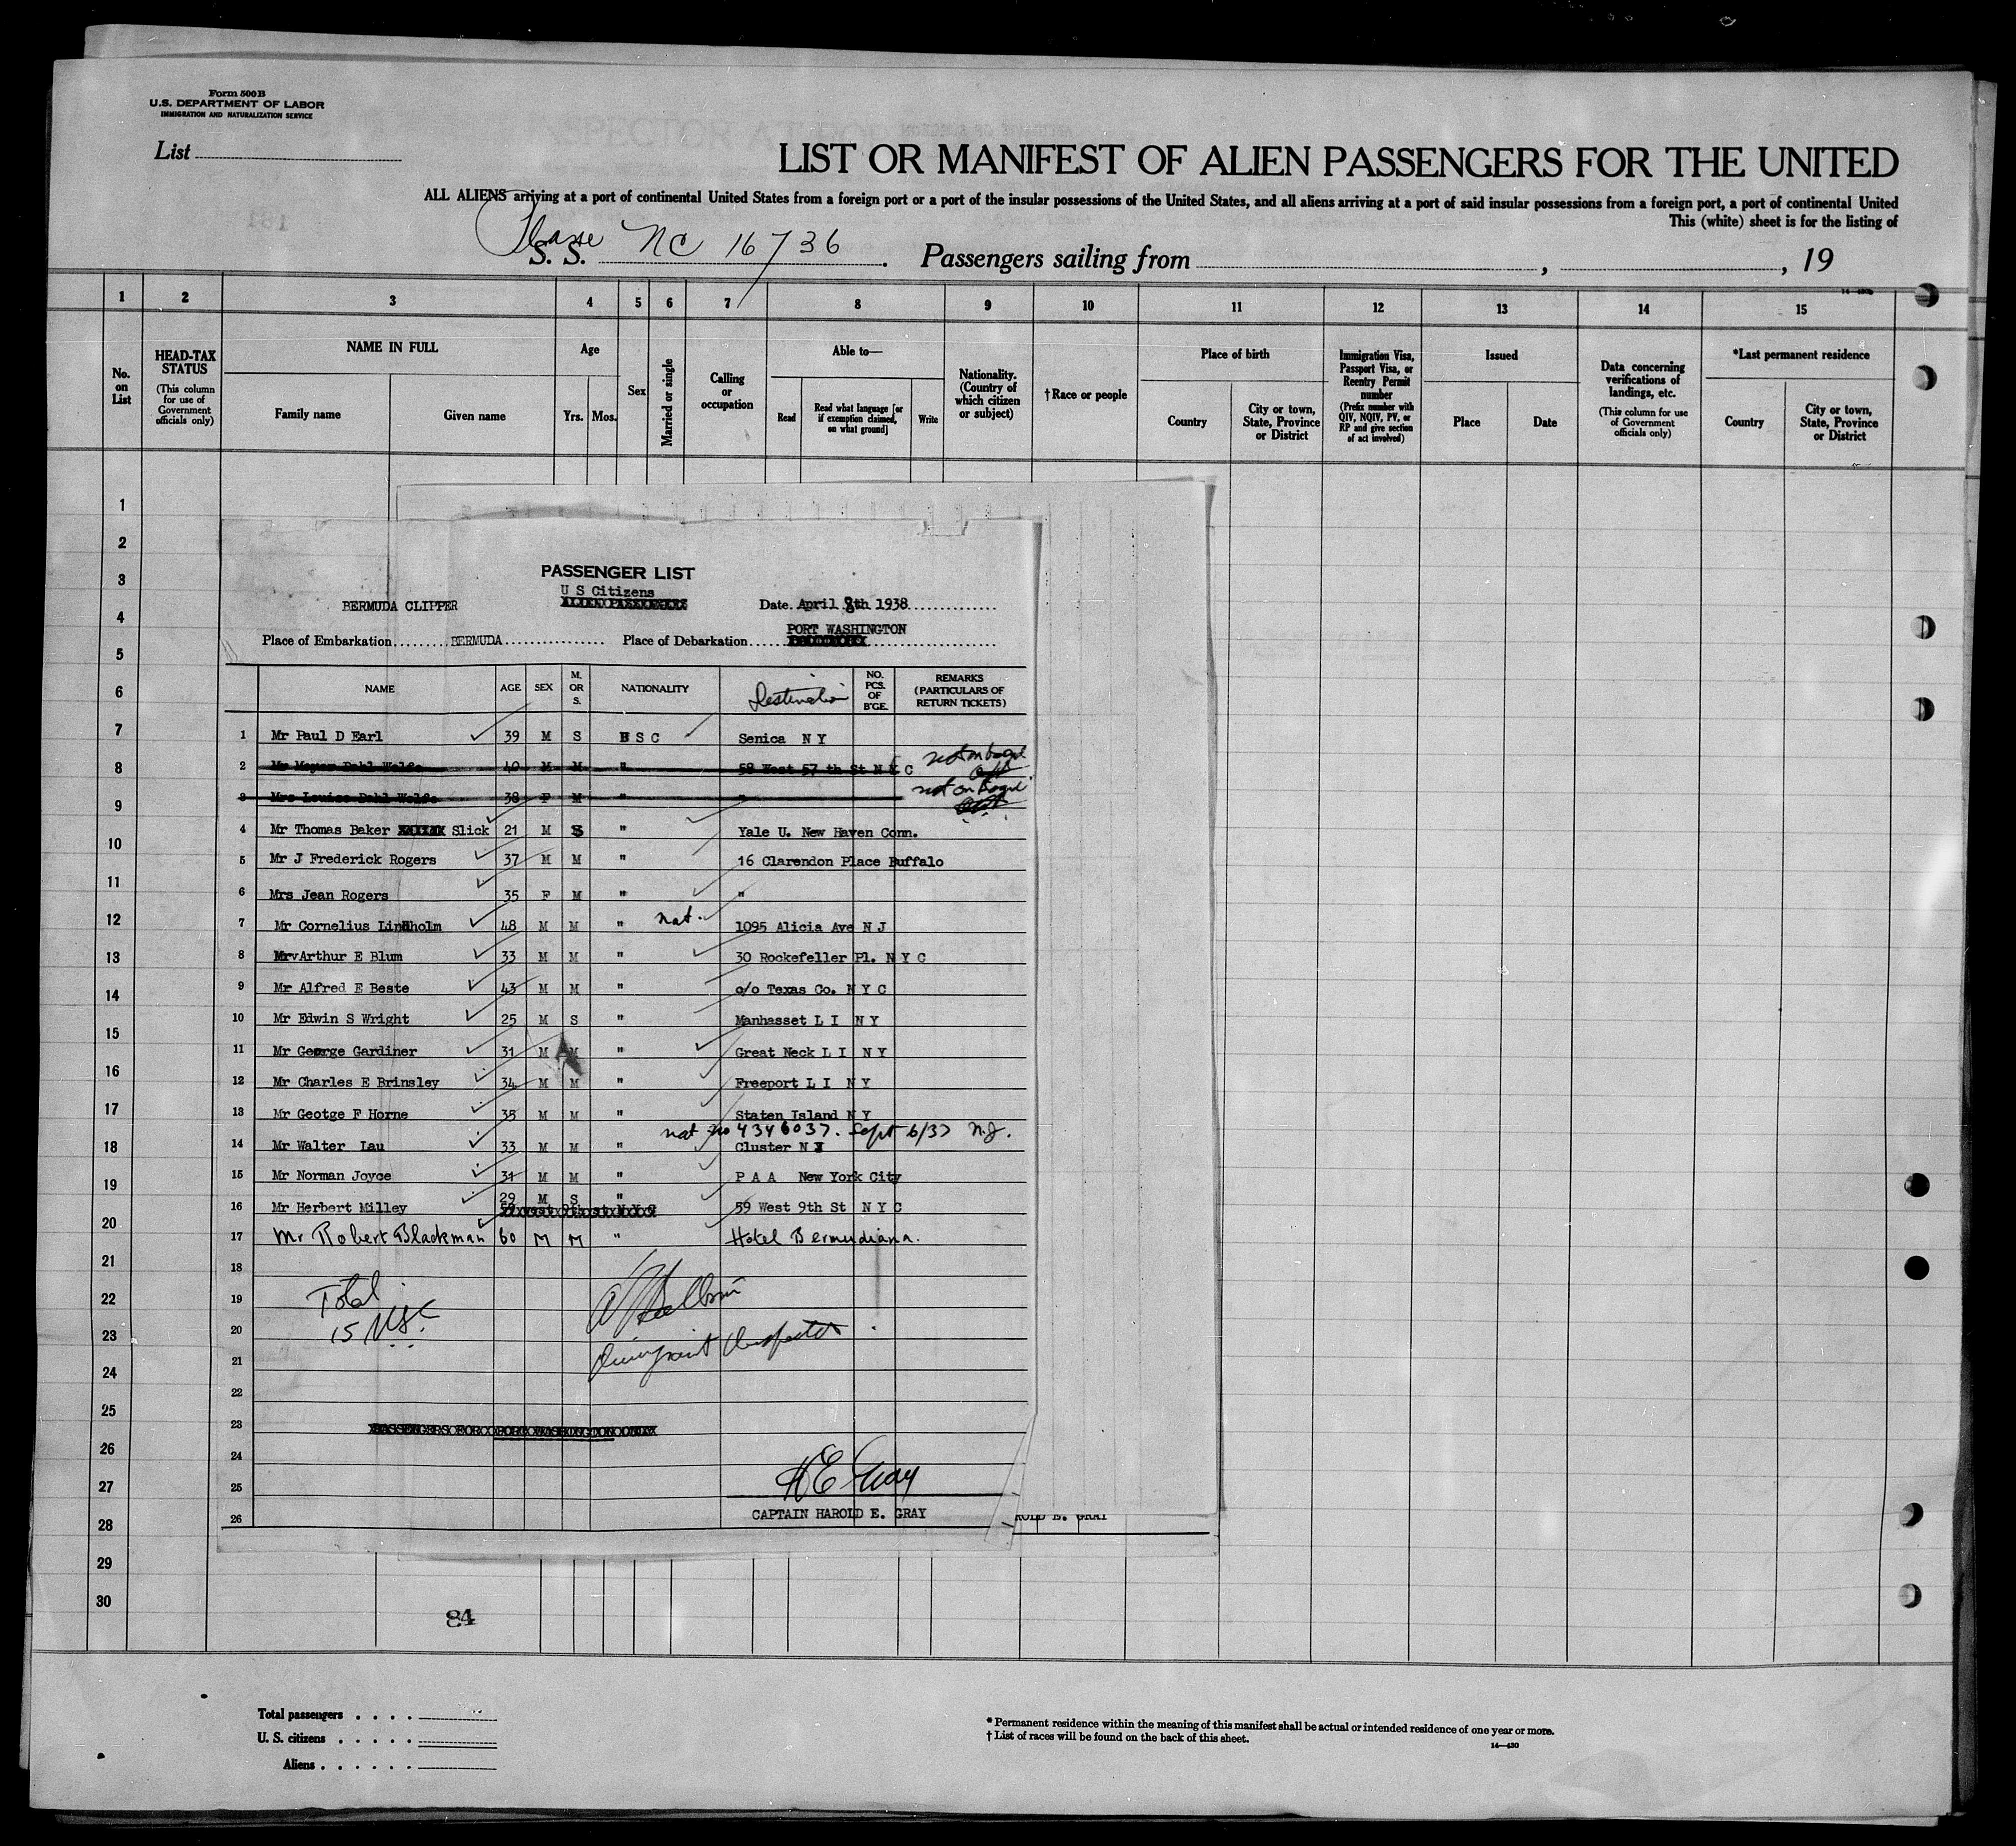 Form 500B
U.S. DEPARTMENT OF LABOR
IMMIGRATION AND NATURALIZATION SERVICE
List
LIST OR MANIFEST OF ALIEN PASSENGERS FOR THE UNITED
ALL ALIENS arriving at a port of continental United States from a foreign port or a port of the insular possessions of the United States, and all aliens arriving at a port of said insular possessions from a foreign port, a port of continental United
This (white) sheet is for the listing of
181
S. S. NC 16736 . Passengers sailing from , , 19
1 2 3 4 5 6 7 8 9 10 11 12 13 14 15
No. on List
HEAD-TAX STATUS
(This column for use of Government officials only)
NAME IN FULL
Family name
Given name
Age
Yrs. Mos.
Sex
Married or single
Calling or occupation
Able to—
Read
Read what language [or if exemption claimed, on what ground]
Write
Nationality. (Country of which citizen or subject)
†Race or people
Place of birth
Country
City or town, State, Province or District
Immigration Visa, Passport Visa, or Reentry Permit number
(Prefix number with QIV, NQIV, PV, or RP and give section of act involved)
Issued
Place
Date
Data concerning verifications of landings, etc.
(This column for use of Government officials only)
*Last permanent residence
Country
City or town, State, Province or District
1
2
3
4
5
6
7
8
9
10
11
12
13
14
15
16
17
18
19
20
21
22
23
24
25
26
27
28
29
30
PASSENGER LIST
U S Citizens
BERMUDA CLIPPER
Date. April 8th 1938
PORT WASHINGTON
Place of Embarkation BERMUDA Place of Debarkation
NAME AGE SEX M. OR S. NATIONALITY Destination NO. PCS. OF B'GE. REMARKS (PARTICULARS OF RETURN TICKETS)
1 Mr Paul D Earl 39 M S U S C Senica N Y
2 Mr Meyer Dahl Wolfe 40 M M " 58 West 57 th St N Y C not on board
3 Mrs Louise Dahl Wolfe 38 F M " " not on board
4 Mr Thomas Baker Slick 21 M S " Yale U. New Haven Conn.
5 Mr J Frederick Rogers 37 M M " 16 Clarendon Place Buffalo
6 Mrs Jean Rogers 35 F M " "
7 Mr Cornelius Lindholm 48 M M " nat. 1095 Alicia Ave N J
8 Mr Arthur E Blum 33 M M " 30 Rockefeller Pl. N Y C
9 Mr Alfred E Beste 43 M M " c/o Texas Co. N Y C
10 Mr Edwin S Wright 25 M S " Manhasset L I N Y
11 Mr George Gardiner 31 M M " Great Neck L I N Y
12 Mr Charles E Brinsley 34 M M " Freeport L I N Y
13 Mr Geotge F Horne 35 M M " Staten Island N Y
nat no 4346037. Sept 6/37 N.J.
14 Mr Walter Lau 33 M M " Cluster N J
15 Mr Norman Joyce 31 M M " P A A New York City
16 Mr Herbert Milley 29 M S " 59 West 9th St N Y C
17 Mr Robert Blackman 60 M M " Hotel Bermudiana.
18
19
20
21
22
23
24
25
26
Total
15 USC
Immigrant Inspector
PASSENGERS FOR PORT WASHINGTON ONLY
H E Gray
CAPTAIN HAROLD E. GRAY
ROLD E. GRAY
84
Total passengers . . . .
U. S. citizens . . . . .
Aliens . . . . . .
* Permanent residence within the meaning of this manifest shall be actual or intended residence of one year or more.
† List of races will be found on the back of this sheet.
14—430